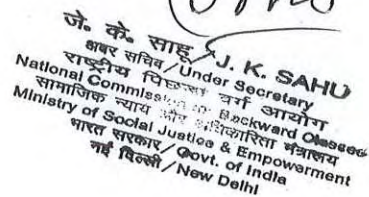 जे. के. साहू / J. K. SAHU
अवर सचिव / Under Secretary
राष्ट्रीय पिछड़ा वर्ग आयोग
National Commission for Backward Classes
सामाजिक न्याय और अधिकारिता मंत्रालय
Ministry of Social Justice & Empowerment
भारत सरकार / Govt. of India
नई दिल्ली / New Delhi